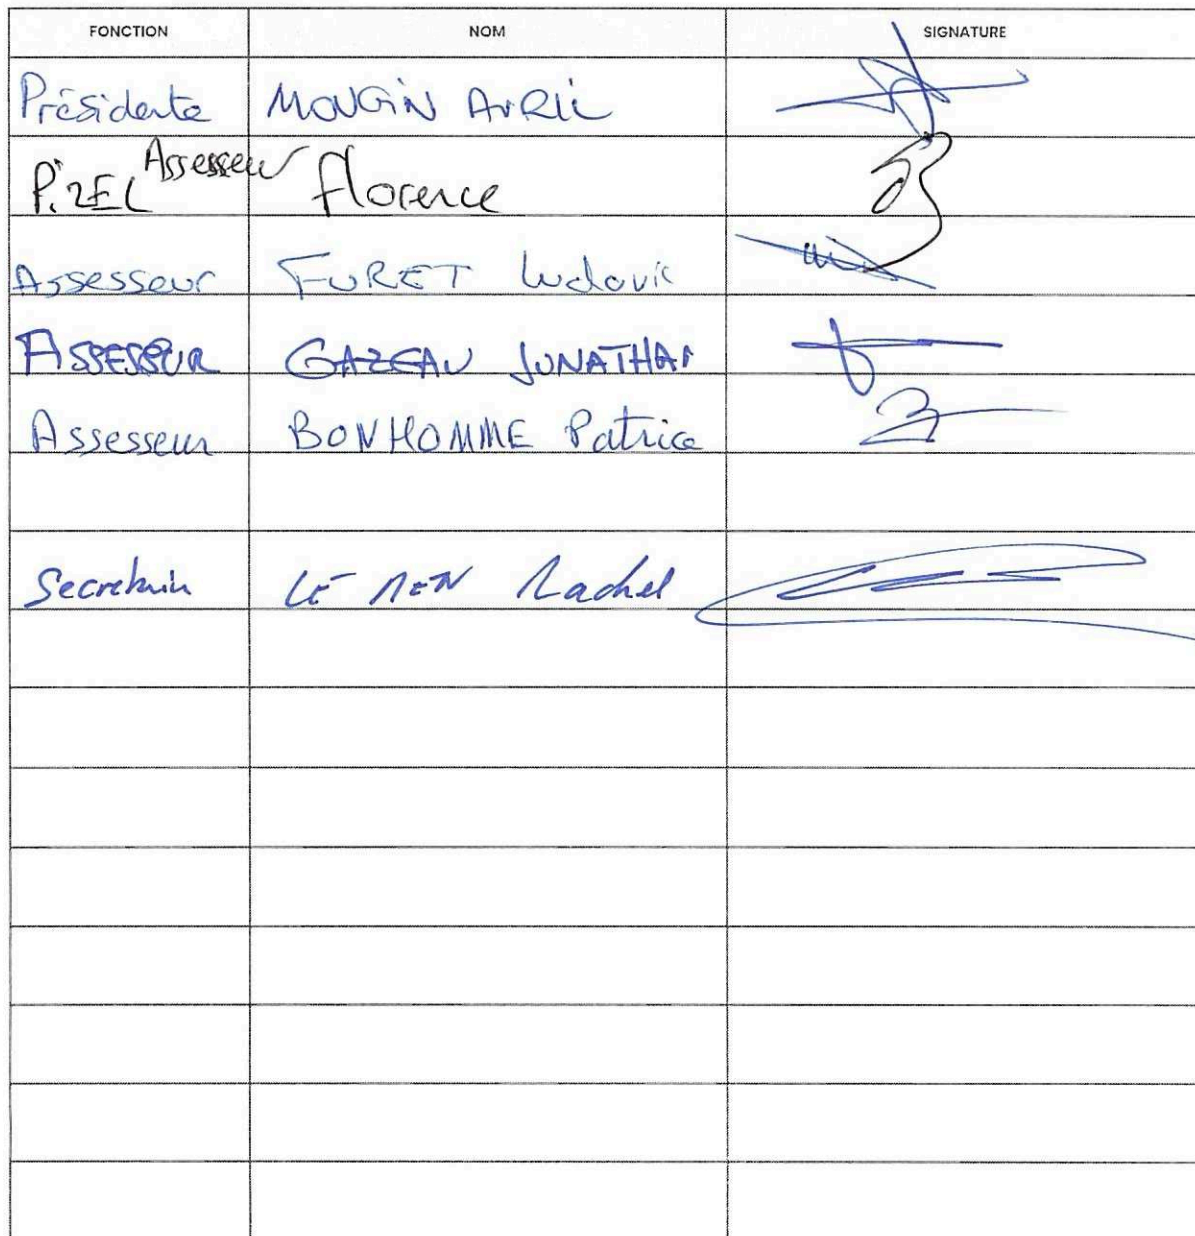 FONCTION NOM SIGNATURE
Présidente MOUGIN AVRIL
PIZEL Assesseur Florence
Assesseur FURET Ludovic
ASSESSEUR GAZEAU JONATHAN
Assesseur BONHOMME Patrice
Secretaire LE MEN Rachel